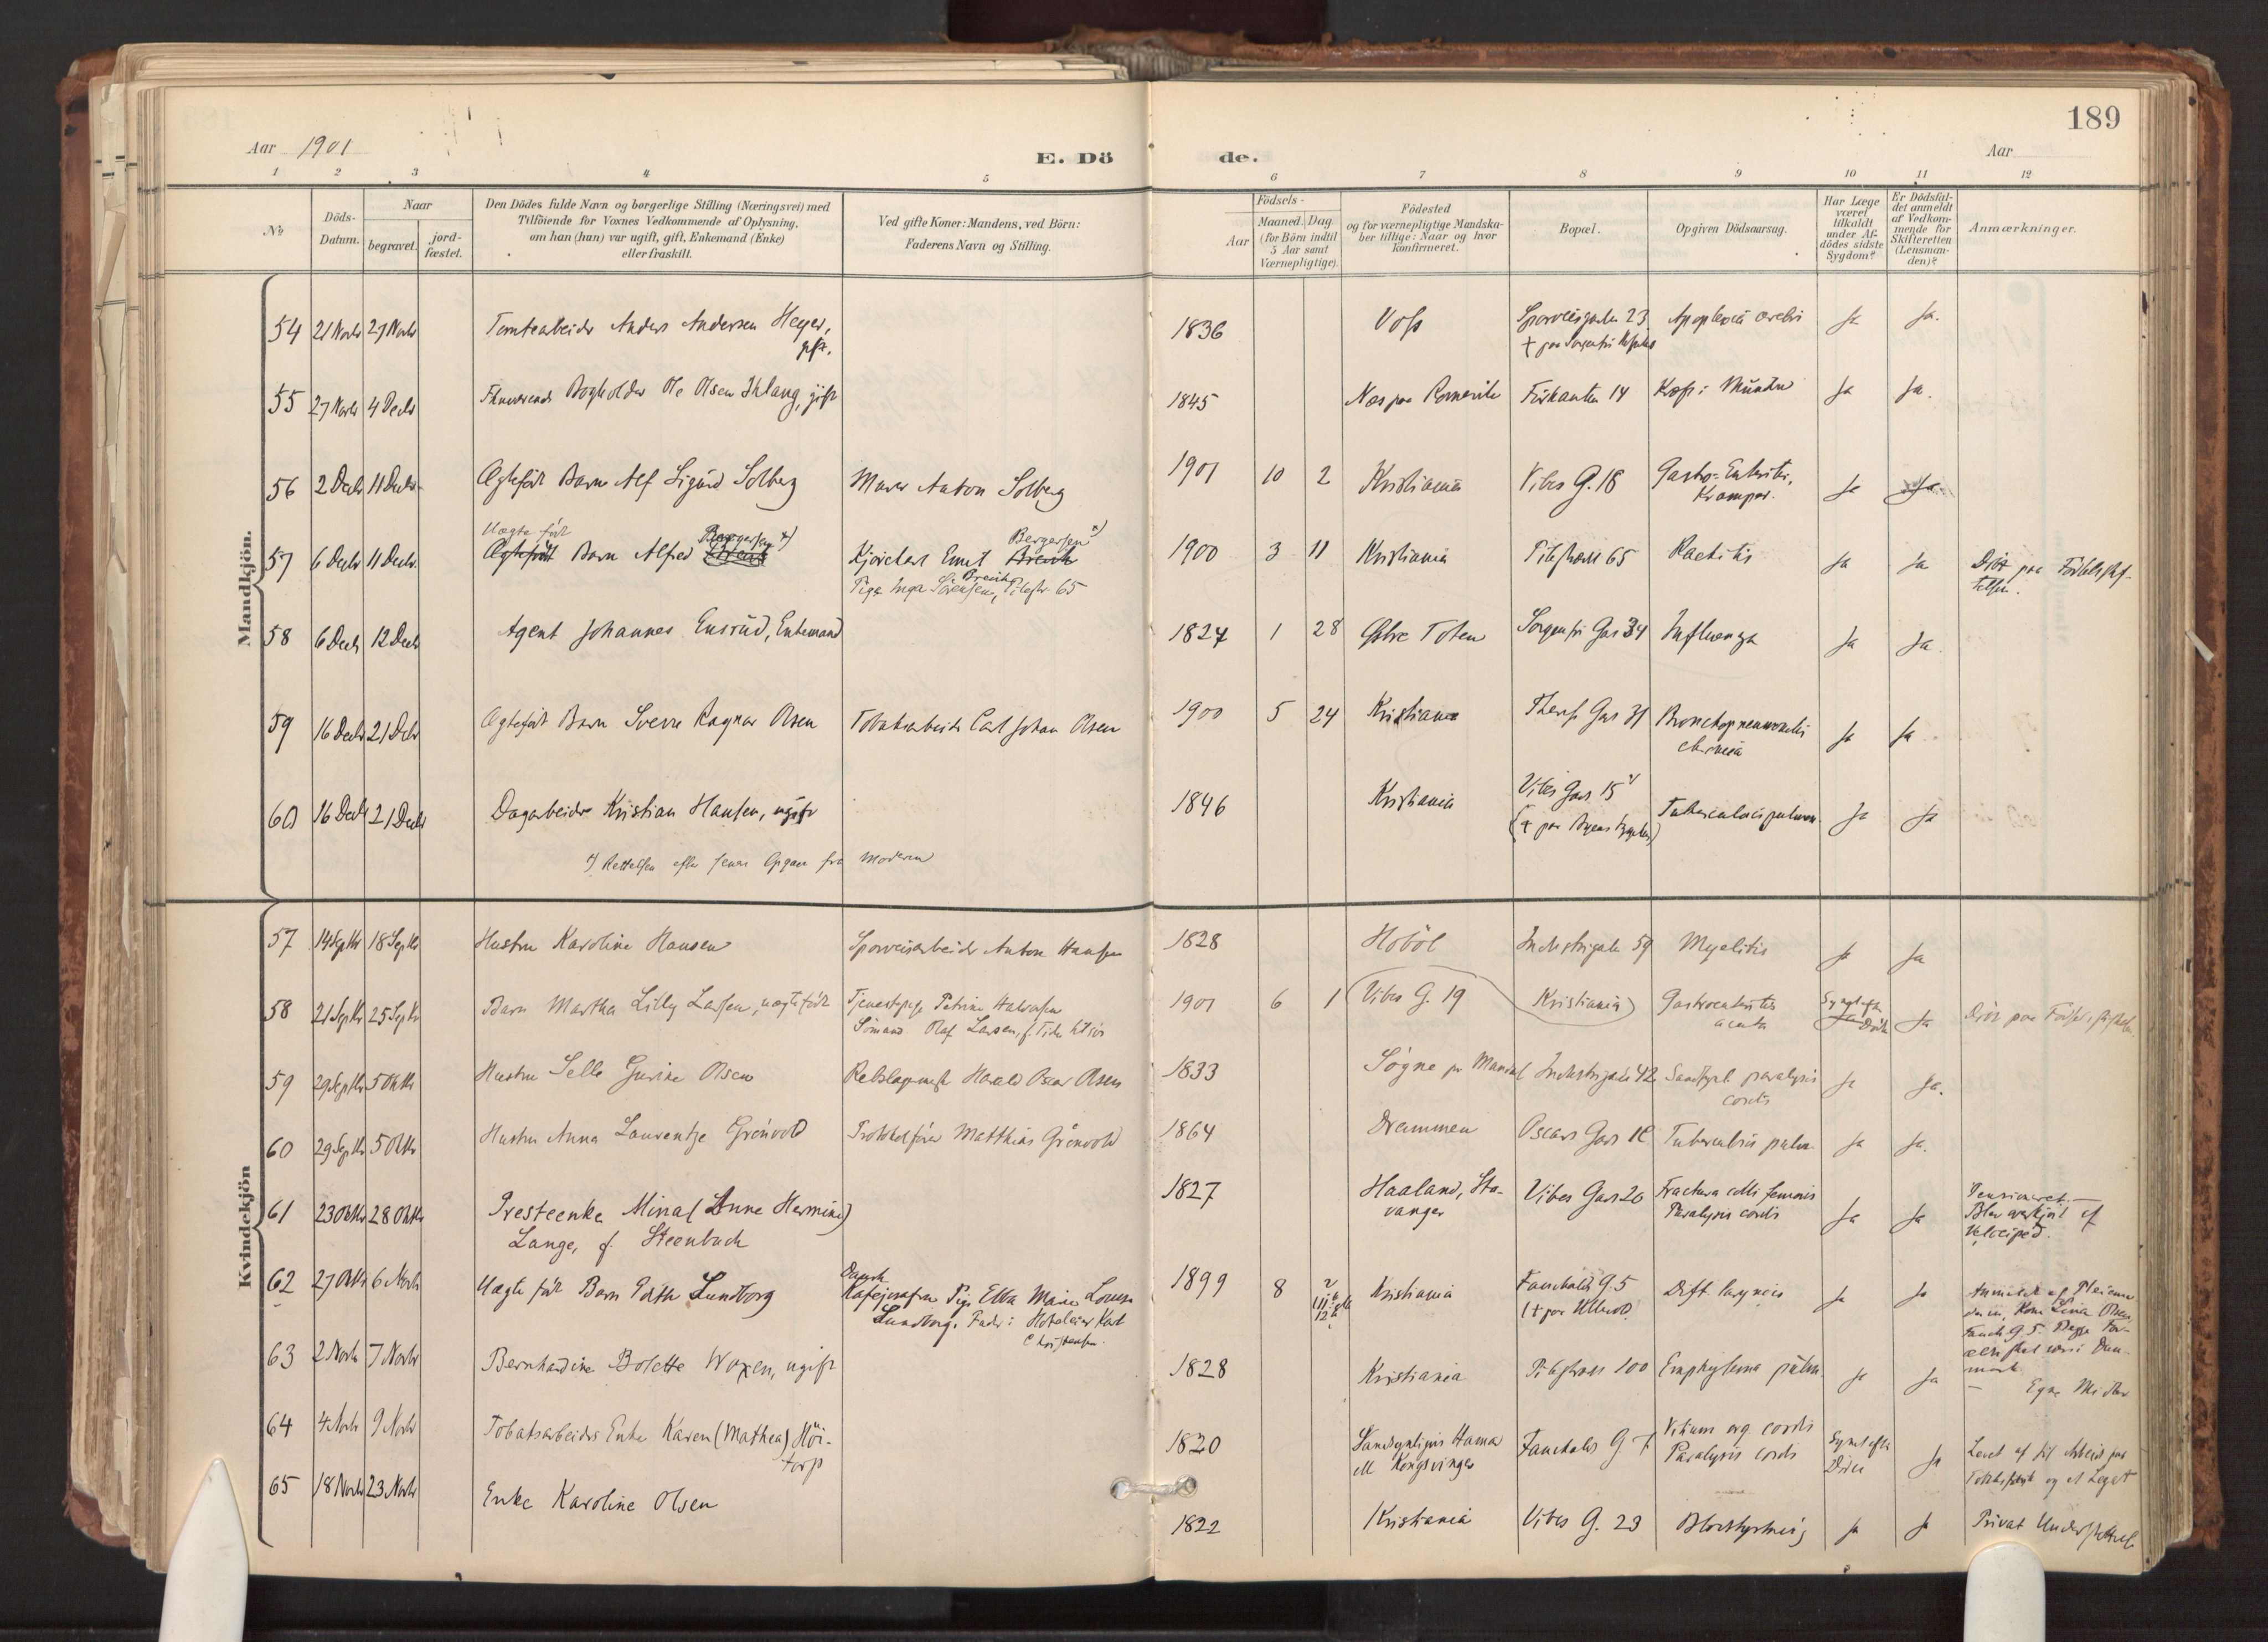 189
Aar 1901
E. Dö de.
Aar
1 2 3 4 5 6 7 8 9 10 11 12
No
Döds-Datum.
Naar
begravet.
jord-fæstet.
Den Dödes fulde Navn og borgerlige Stilling (Næringsvei) med
Tilföiende for Voxnes Vedkommende af Oplysning,
om han (hun) var ugift, gift, Enkemand (Enke)
eller fraskilt.
Ved gifte Koner: Mandens, ved Börn:
Faderens Navn og Stilling.
Födsels-
Aar
Maaned. Dag
(for Börn indtil
5 Aar samt
Værnepligtige).
Födested
og for værnepligtige Mandska-
ber tillige: Naar og hvor
konfirmeret.
Bopæl.
Opgiven Dödsaarsag.
Har Læge
været
tilkaldt
under Af-
dödes sidste
Sygdom?
Er Dödsfal-
det anmeldt
af Vedkom-
mende for
Skifteretten
(Lensman-
den)?
Anmærkninger.
Mandkjön.
54 21 Novbr 27 Novbr Tomtearbeider Anders Andersen Heyer, 1836 Voss Sporveisgaden 23 Apoplexia cerebri Ja Ja.
gift.
55 27 Novbr 4 Decbr Bogholder Ole Olsen Ihlang, gift 1845 Næs paa Romerike Firkanten 14 Kræft i Munden Ja Ja.
56 2 Decbr 11 Decbr Ægtefödt Barn Alf Sigurd Solberg Murer Anton Solberg 1901 10 2 Kristiania Vibes G. 18 Gastro-Enteritis, Ja Ja
Kramper.
Uægte födt Bergersen x) Bergersen x)
57 6 Decbr 11 Decbr Ægtefödt Barn Alfred Kjörekarl Ernst 1900 3 11 Kristiania Pilestræde 65 Rachitis Ja Ja Död paa Födselsstif-
Pige Inga Sörensen, Pilestr. 65 telsen.
58 6 Decbr 12 Decbr Agent Johannes Ensrud, Enkemand 1824 1 28 Östre Toten Sorgenfri Gad 34 Influenza Ja Ja
59 16 Decbr 21 Decbr Ægtefödt Barn Sverre Ragnar Olsen Tobaksarbeider Carl Johan Olsen 1900 5 24 Kristiania Theres Gad 31 Bronchopneumonia Ja Ja
chronica
60 16 Decbr 21 Decbr Dagarbeider Kristian Hansen, ugift 1846 Kristiania Vibes Gad 15 Tuberculosis pulmon. Ja Ja
(+ paa Byens Sygehus)
x) Rettelsen efter senere Opgave fra Moderen
Kvindekjön
57 14 Septbr 18 Septbr Hustru Karoline Hansen Sporveisarbeider Anton Hansen 1828 Höböl Industrigade 59 Myelitis Ja Ja
58 21 Septbr 25 Septbr Barn Martha Lilly Larsen, uægtefödt Tjenestepige Petrine Halvorsen 1901 6 1 Vibes G. 19 Kristiania Gastroenteritis Synet efter Ja Död paa Födselsstiftelsen
Sömand Olaf Larsen, acuta Döden
59 29 Septbr 5 Oktbr Hustru Selle Gurine Olsen Rebslagermester Harald Oscar Olsen 1833 Sögne pr Mandal Industrigade 42 Sandsynl. paralysis Ja Ja.
cordis
60 29 Septbr 5 Oktbr Hustru Anna Laurentze Grönvold Protokolförer Matthias Grönvold 1864 Drammen Oscars Gad 18 Tuberculosis pulm. Ja Ja.
61 23 Oktbr 28 Oktbr Presteenke Mina (Anne Hermine) 1827 Haaland, Sta- Vibes Gad 20 Fractura colli femoris Ja Ja Pensioneret.—
Lange, f. Steenbuch vanger Paralysis cordis Blev overkjört af
Velociped.
62 27 Oktbr 6 Novbr Uægte födt Barn Edith Lundborg Dansk
Pige Ella Marie Lovise 1899 8 Kristiania Fauchalds G. 5 Dift. laryngis Ja Ja Anmeldt af Pleiemo-
Lundborg. Fader: Hoteleier Karl (+ paa Ullevold) deren, Kone Lina Olsen,
Christensen. Fauch. G 5.
63 2 Novbr 7 Novbr Bernhardine Bolette Woxen, ugift 1828 Kristiania Pilestræde 100 Emphysema pulm. Ja Ja Egne Midler
64 4 Novbr 9 Novbr Tobaksarbeiders Enke Karen (Mathea) Höi- 1820 Sandsynligvis Hamar Fauchalds G 7 Vitium org. cordis Synet efter Ja Levet af sit Arbeid paa
torp ell Kongsvinger Paralysis cordis Döden Tobaksfabrik og et Legat
65 18 Novbr 23 Novbr Enke Karoline Olsen 1822 Kristiania Vibes G. 23 Blodstyrtning Ja Ja Privat Understöttelse